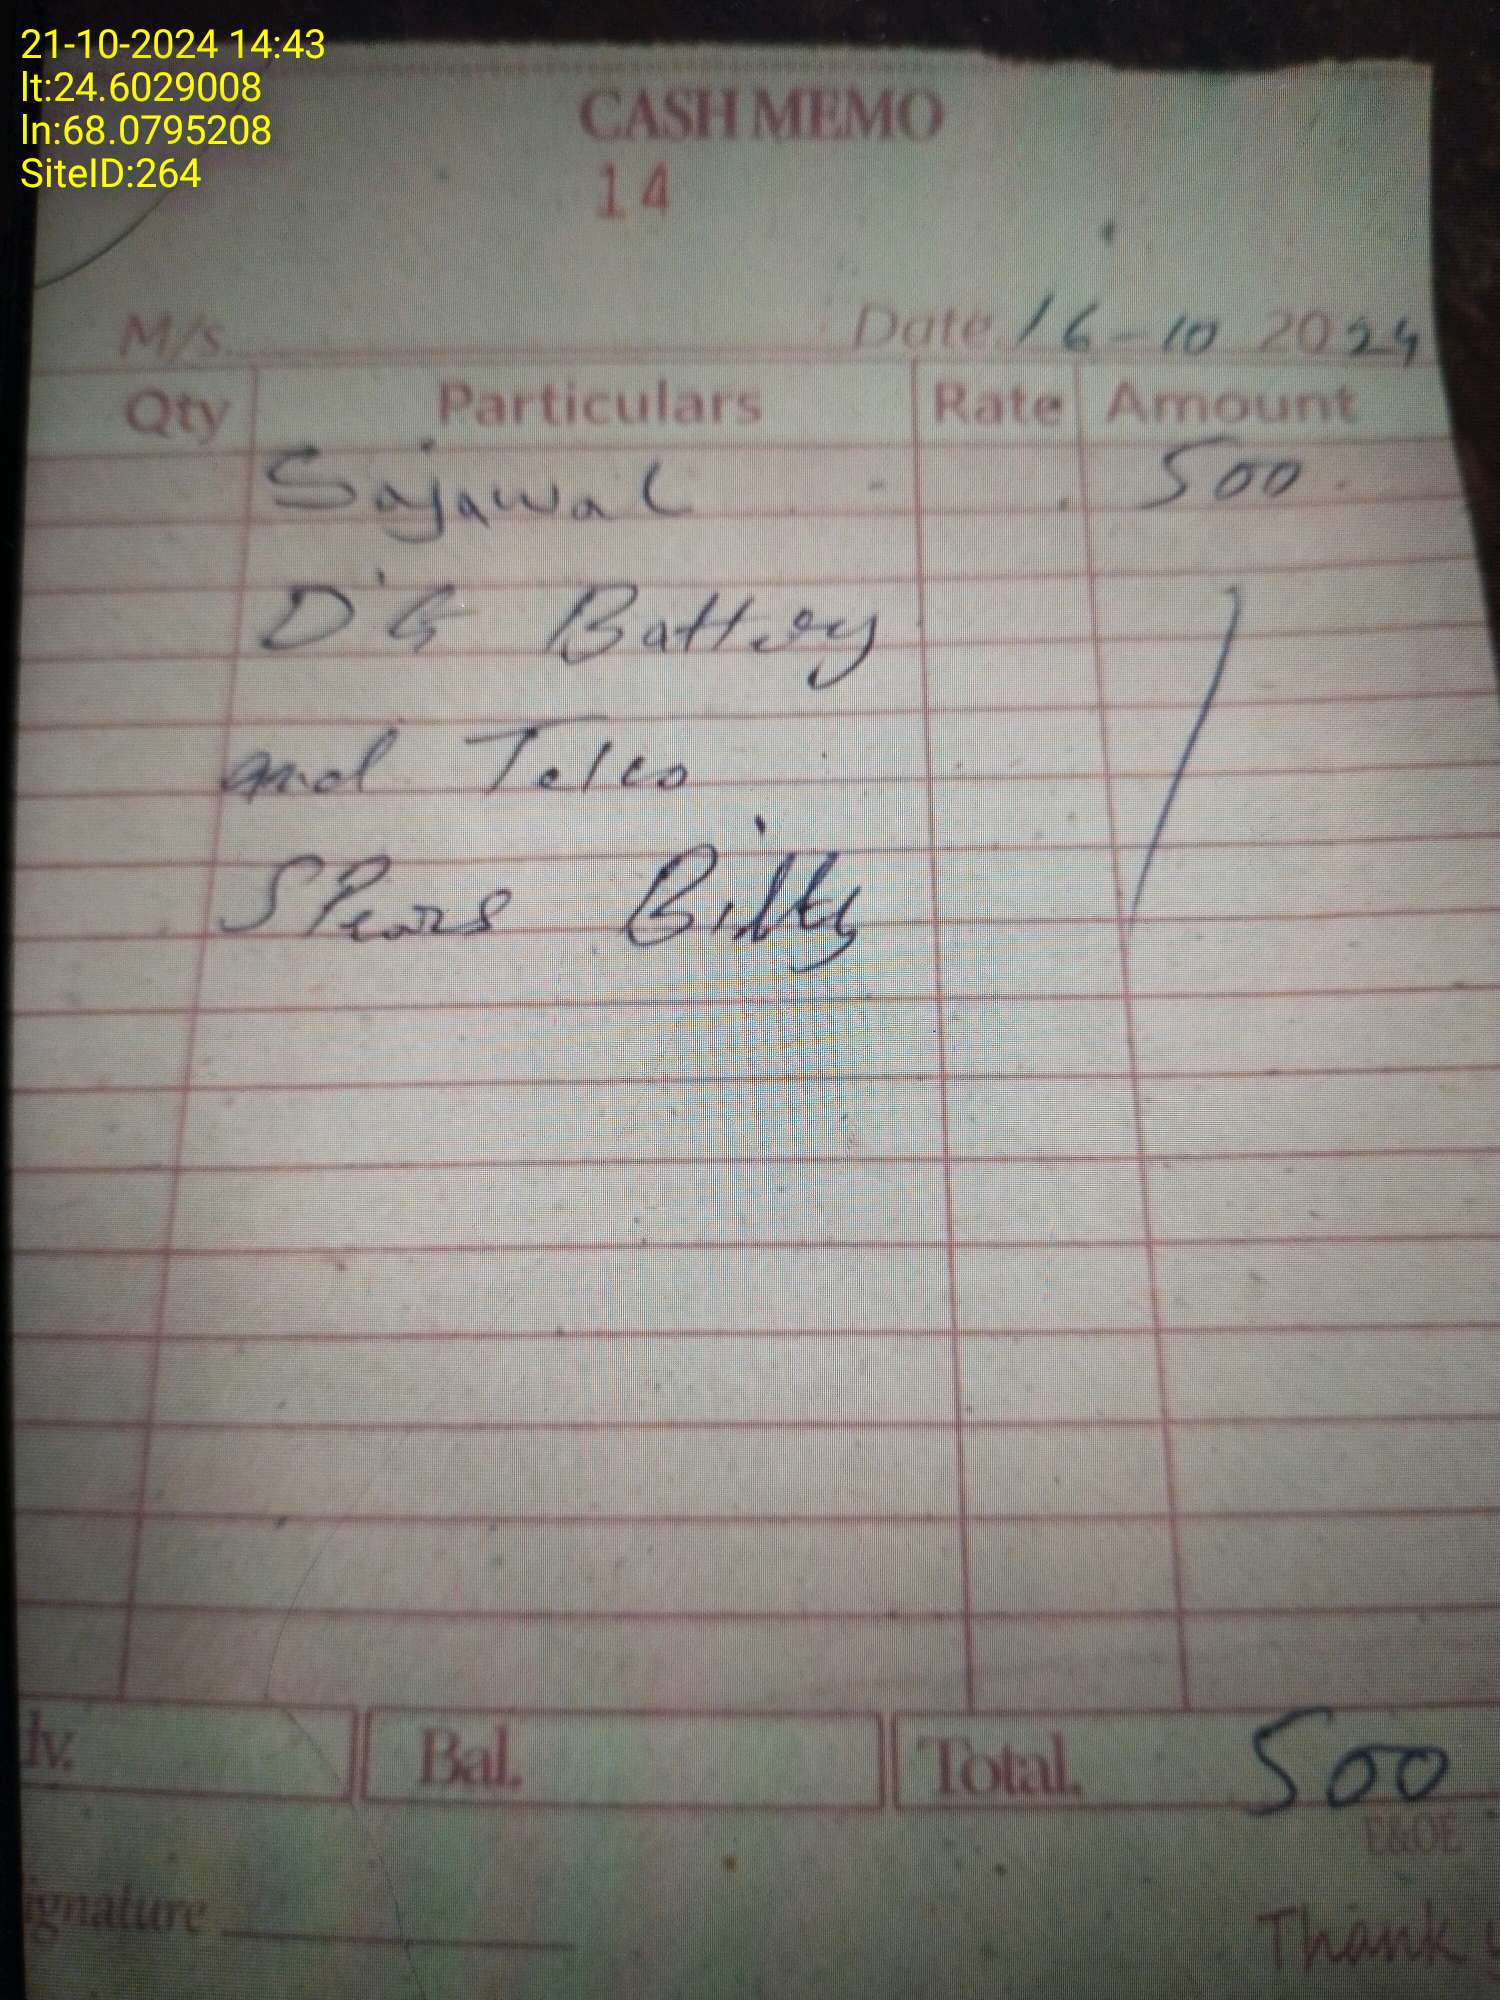 21-10-2024 14:43
lt:24.6029008
ln:68.0795208
SiteID:264
CASH MEMO
14
M/s. Date 16-10 2024
Qty Particulars Rate Amount
Sajawal 500
D'G Battery
and Telco
SPears Billty
dv. Bal. Total. 500
E&OE
ignature
Thank y